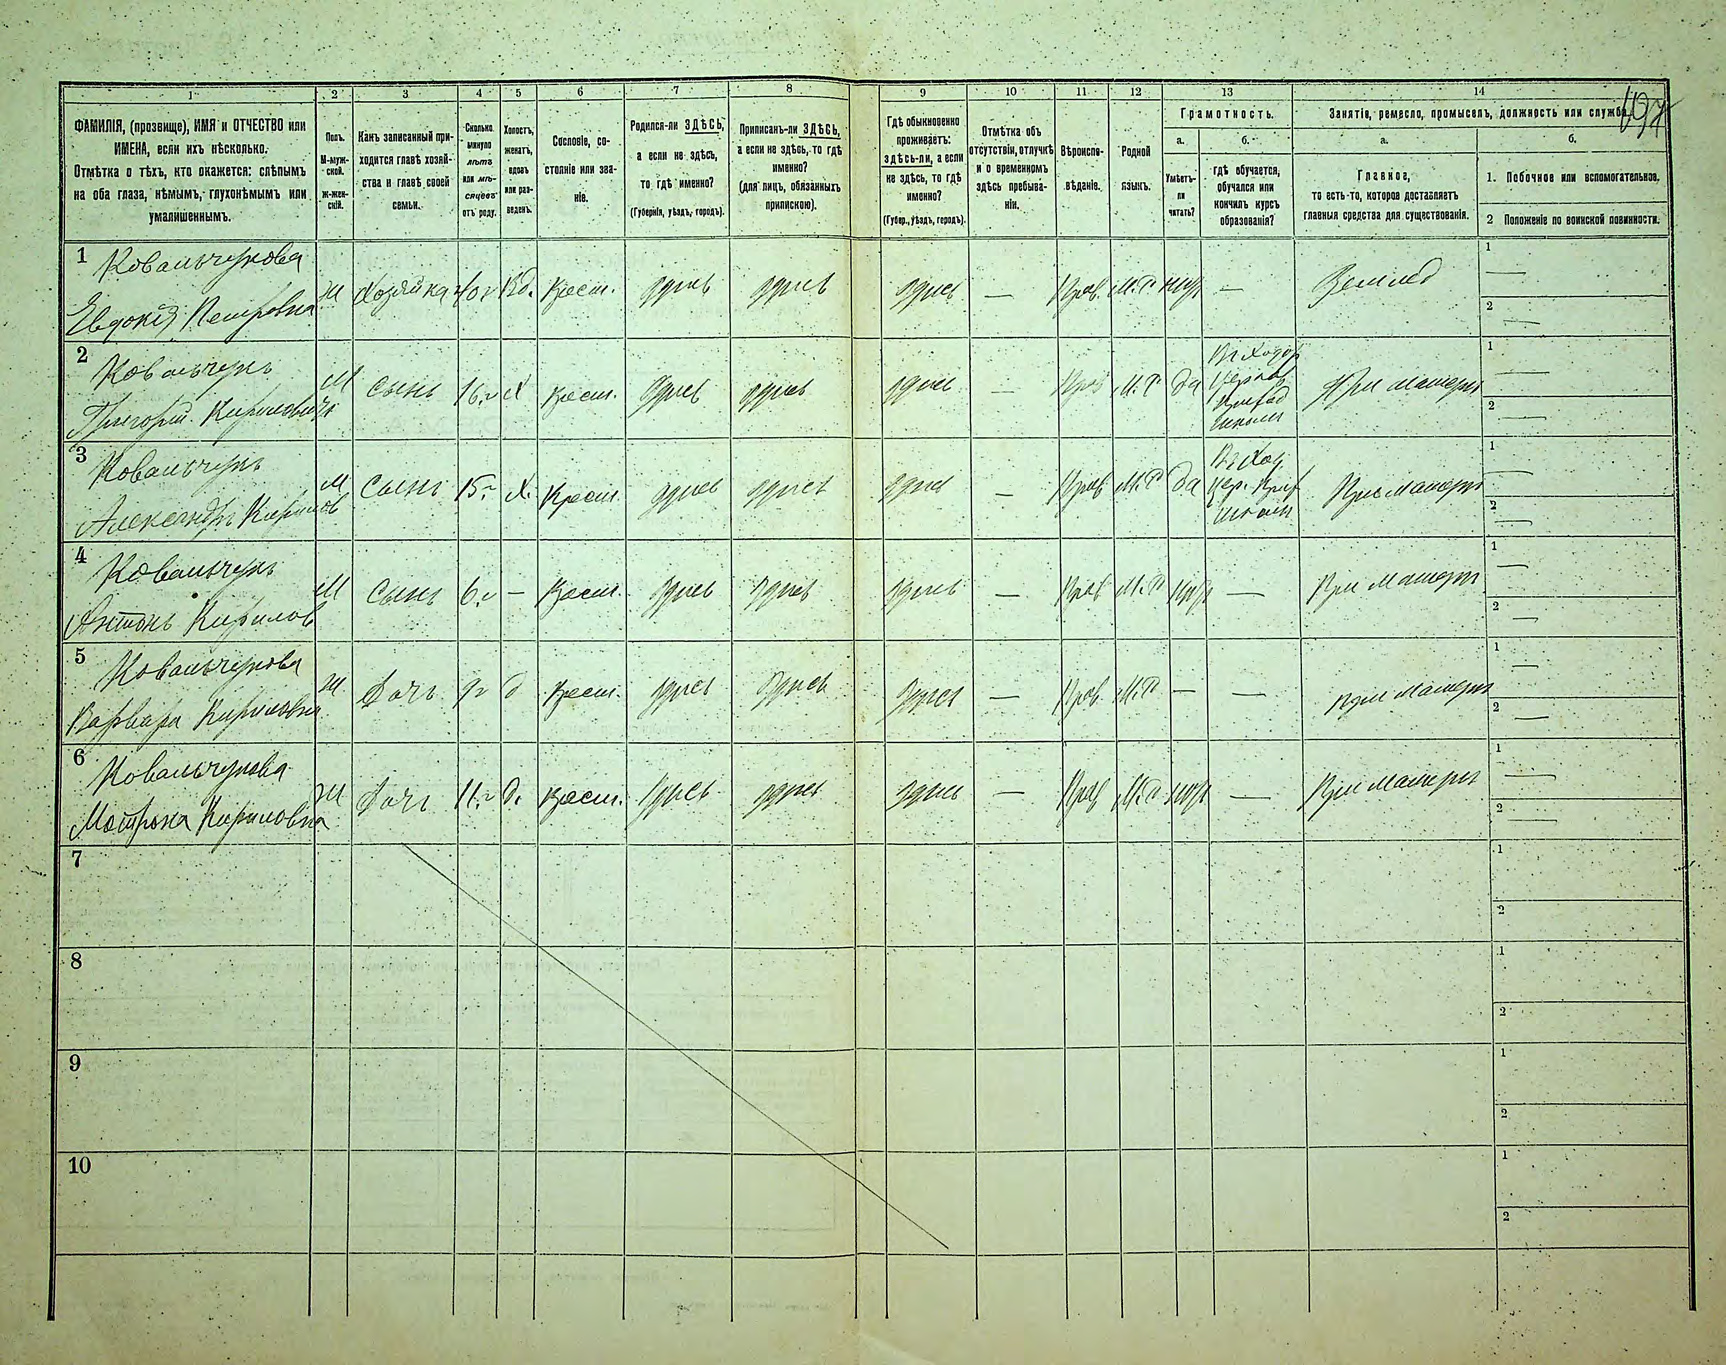 1 2 3 4 5 6 7 8 9 10 11 12 13 14
697
ФАМИЛІЯ, (прозвище), ИМЯ и ОТЧЕСТВО или
ИМЕНА, если ихъ нѣсколько.
Отмѣтка о тѣхъ, кто окажется: слѣпымъ
на оба глаза, нѣмымъ, глухонѣмымъ или
умалишеннымъ.
Полъ.
М-муж-
ской.
ж-жен-
скій.
Какъ записанный при-
ходится главѣ хозяй-
ства и главѣ своей
семьи.
Сколько
минуло
лѣтъ
или мѣ-
сяцевъ
отъ роду.
Холостъ,
женатъ,
вдовъ
или раз-
веденъ.
Сословіе, со-
стояніе или зва-
ніе.
Родился-ли ЗДѢСЬ,
а если не здѣсь,
то гдѣ именно?
(Губернія, уѣздъ, городъ).
Приписанъ-ли ЗДѢСЬ,
а если не здѣсь, то гдѣ
именно?
(для лицъ, обязанныхъ
припискою).
Гдѣ обыкновенно
проживаетъ:
здѣсь-ли, а если
не здѣсь, то гдѣ
именно?
(Губер., уѣздъ, городъ).
Отмѣтка объ
отсутствіи, отлучкѣ
и о временномъ
здѣсь пребыва-
ніи.
Вѣроиспо-
вѣданіе.
Родной
языкъ.
Грамотность.
а.
Умѣетъ-
ли
читать?
б.
гдѣ обучается,
обучался или
кончилъ курсъ
образованія?
Занятіе, ремесло, промыселъ, должность или служба.
а.
Главное,
то есть-то, которое доставляетъ
главныя средства для существованія.
б.
1. Побочное или вспомогательное.
2 Положеніе по воинской повинности.
1 Ковальчукова
Евдокія Петровна
ж Хозяйка 40 г Вд. Крест. здѣсь здѣсь здѣсь — Прав. М.Р. нѣтъ — Землед
1 —
2 —
2 Ковальчукъ
Григорій Кириловичъ
М сынъ 16. г Х Крест. здѣсь здѣсь здѣсь — Прав М.Р да
Церков
Школы
При матери
1 —
2 —
3 Ковальчукъ
Александръ Кирилов
М сынъ 15. г Х. Крест. здѣсь здѣсь здѣсь — Прав М.Р да
При матери
1 —
2 —
4 Ковальчукъ
Антонъ Кирилов
М Сынъ 6. г — Крест. здѣсь здѣсь здѣсь — Прав М.Р нѣтъ — При матери
1 —
2 —
5 Ковальчукова
Варвара Кириловна
ж Дочь 9 г д Крест. здѣсь здѣсь здѣсь — Прав М.Р — — при матери
1 —
2 —
6 Ковальчукова
Мотрона Кириловна
ж Дочь 11. г д. Крест. здѣсь здѣсь здѣсь — Прав М.Р нѣтъ — При матери
1 —
2 —
7
1
2
8
1
2
9
1
2
10
1
2